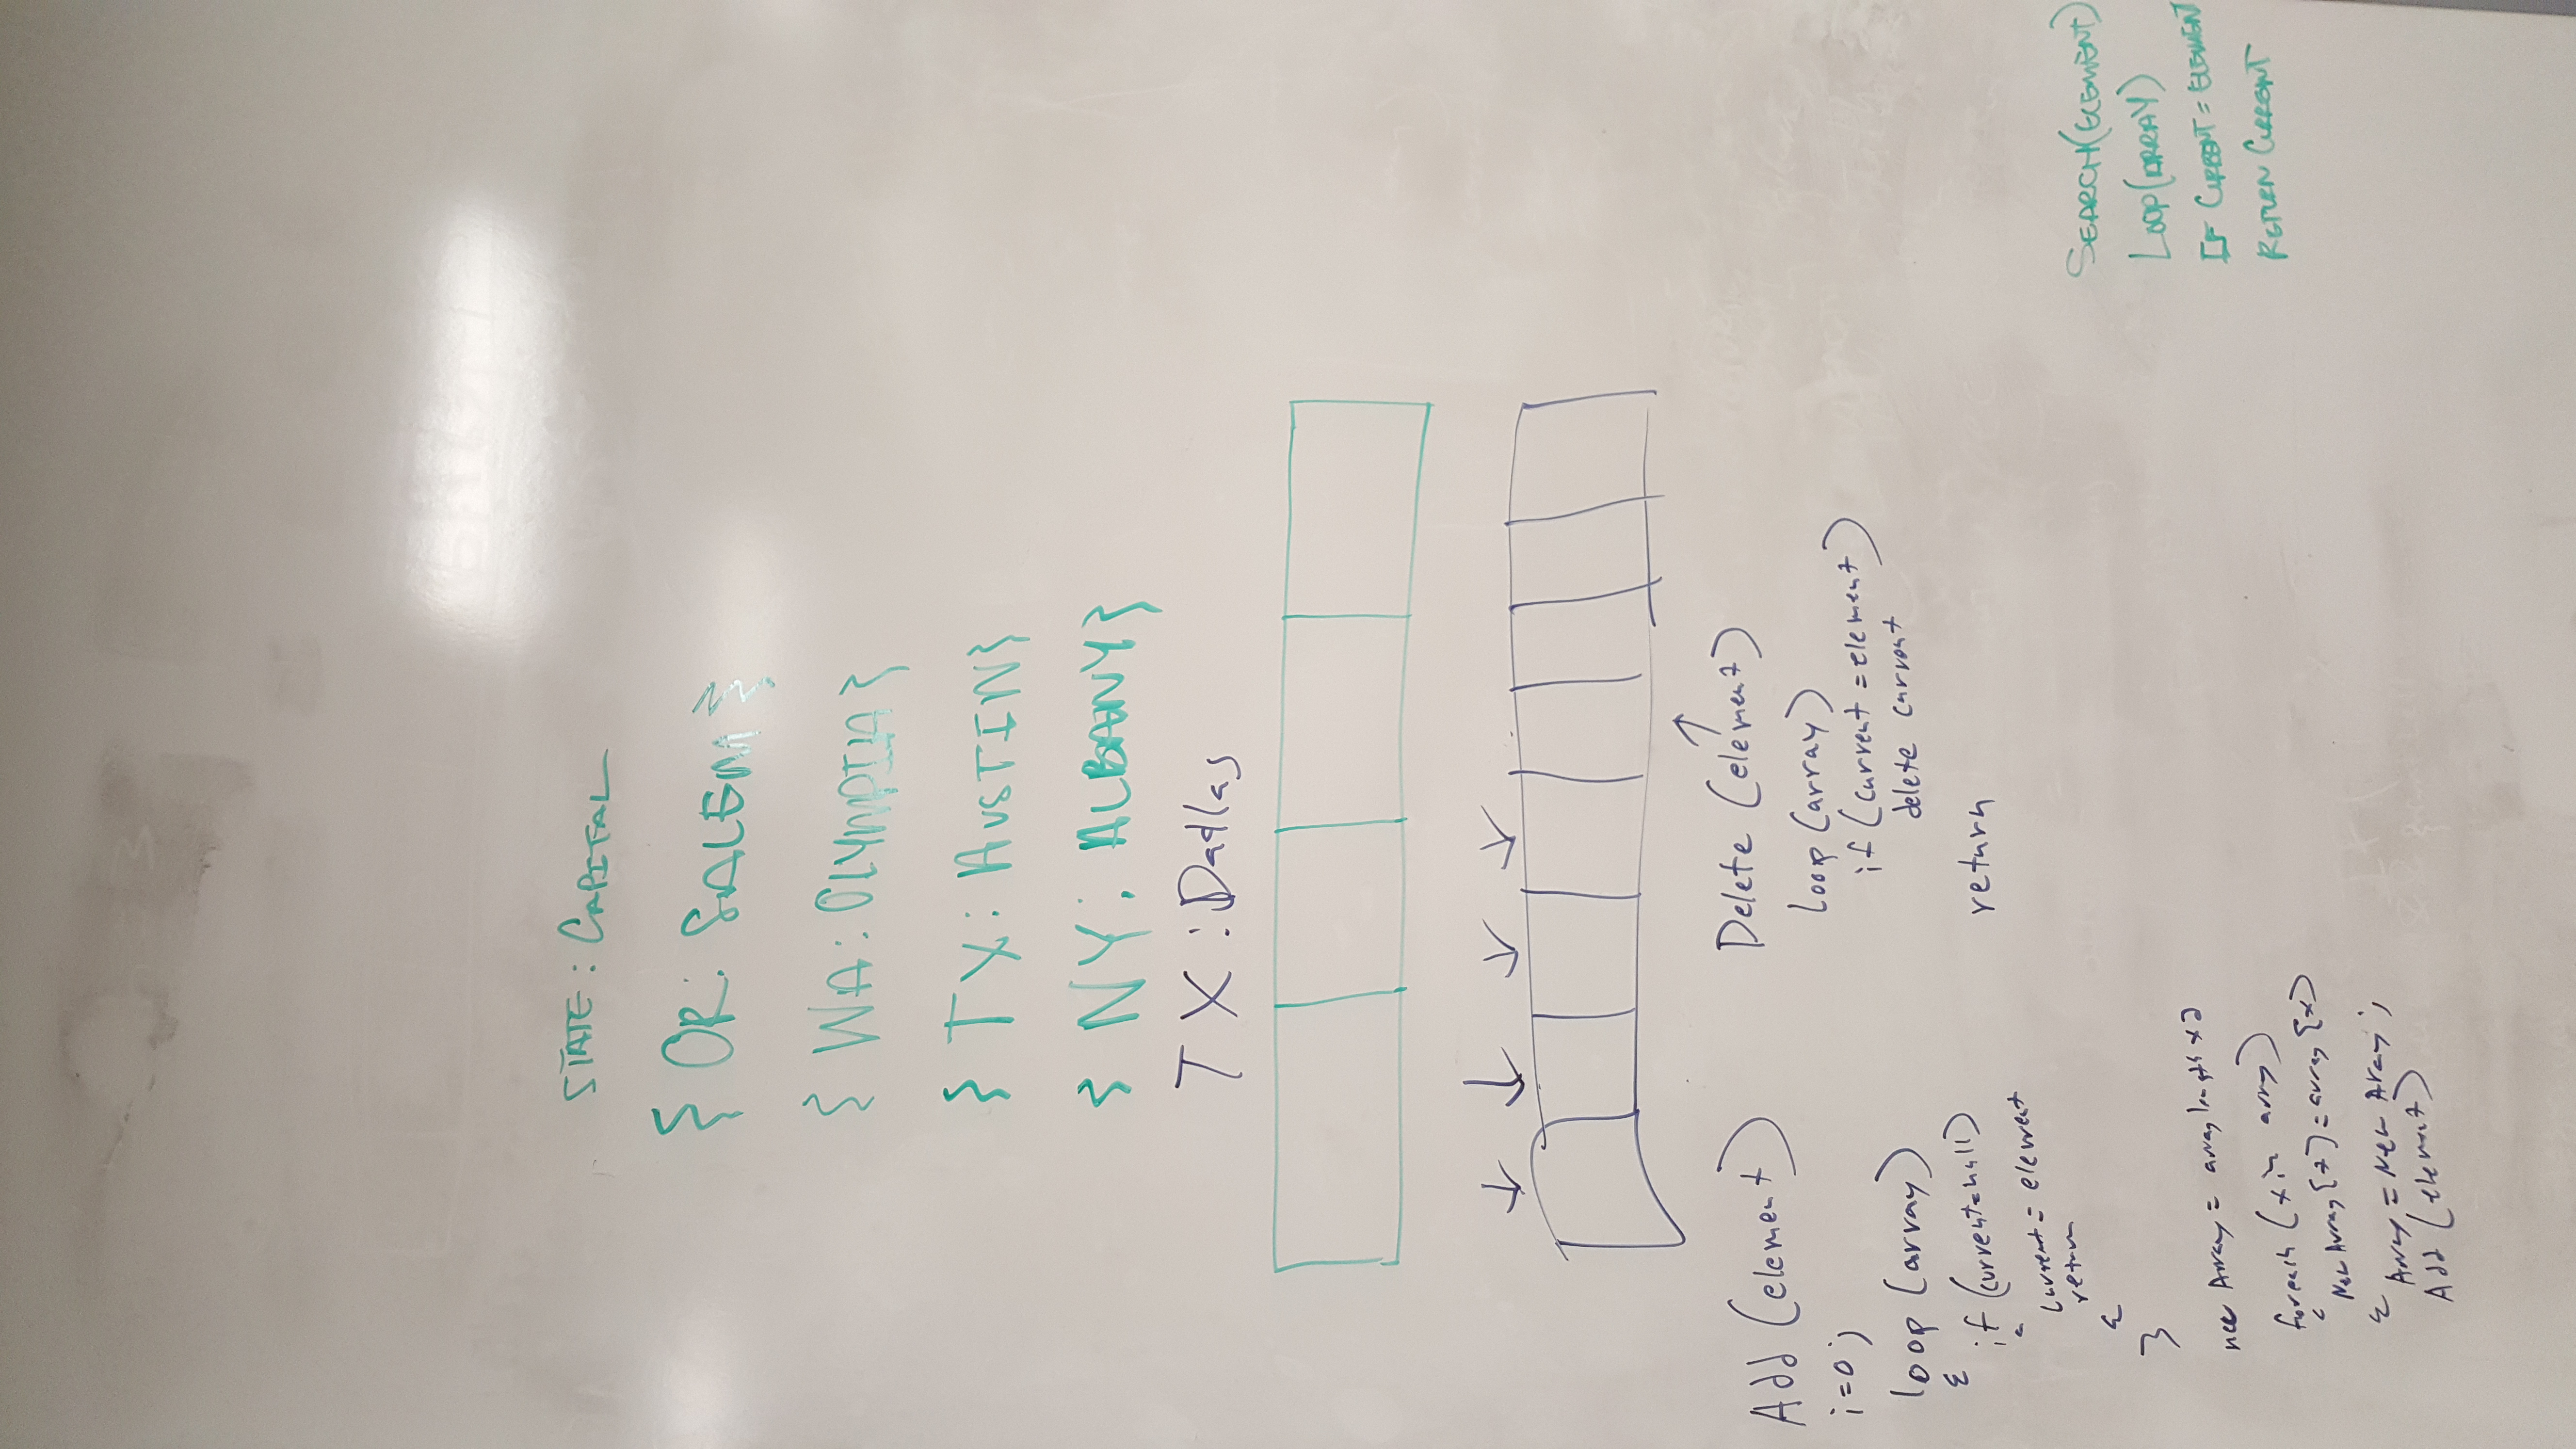 STATE: CAPITAL
{ OR: SALEM }
{ WA: OLYMPIA }
{ TX: AUSTIN }
{ NY: ALBANY }
TX: Dallas
Add (element)
i=0;
loop (array)
{
if (current=null)
current = element
return
}
new Array = array length x2
foreach (x in array)
New Array [x] = array [x]
Array = New Array;
Add (element)
Delete (element)
loop (array)
if (current = element)
delete current
return
SEARCH(ELEMENT)
LOOP(ARRAY)
IF CURRENT = ELEMENT
RETURN CURRENT